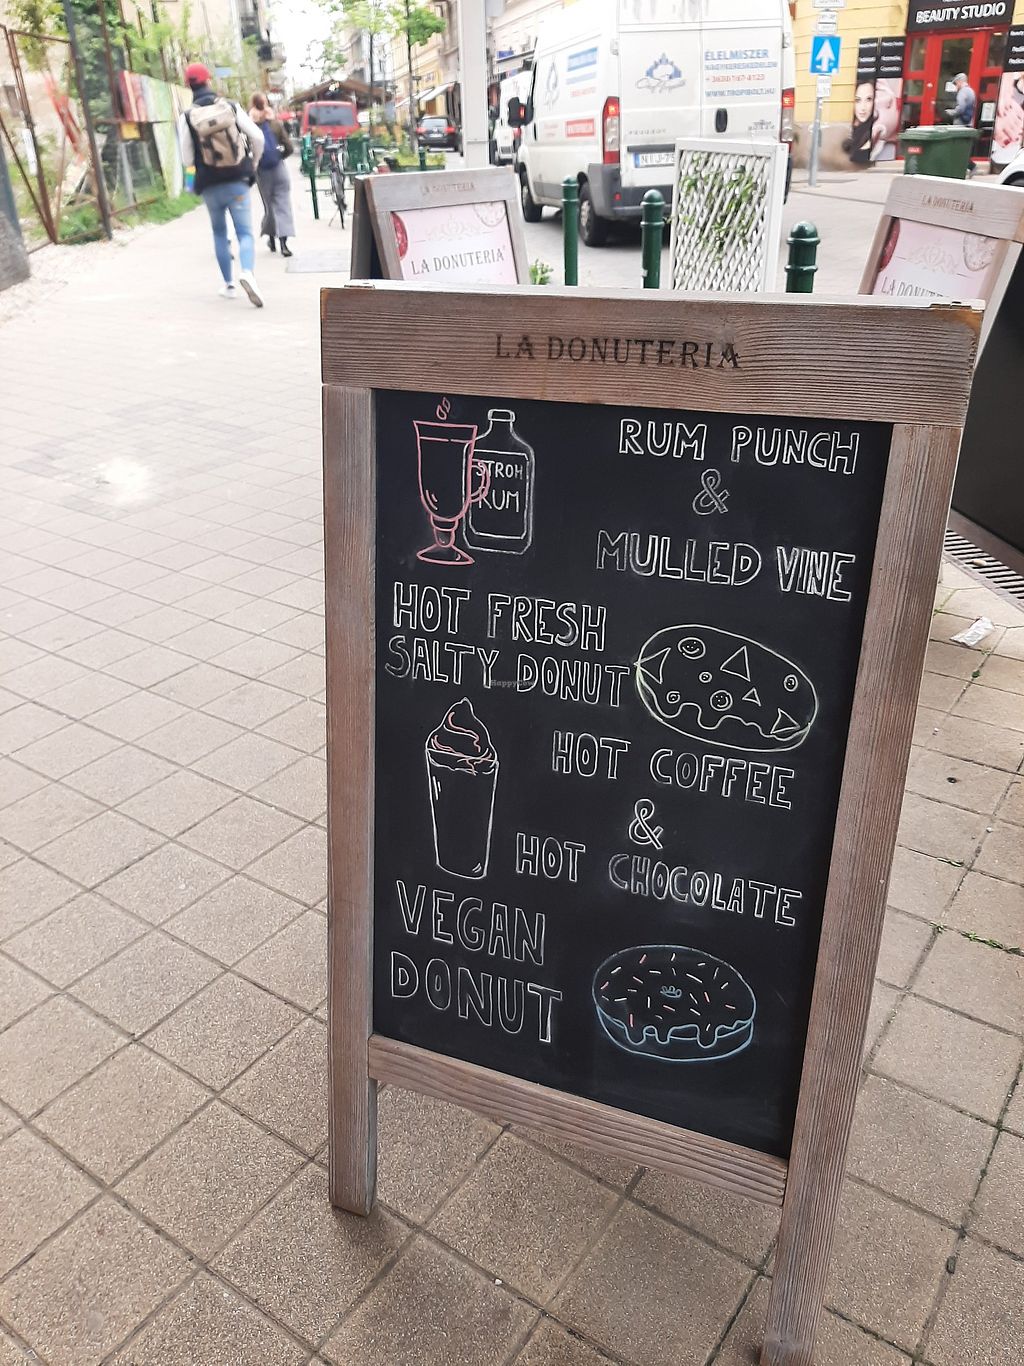 BEAUTY STUDIO
ÉLELMISZER
NAGYKERESKEDELEM
LA DONUTERIA
LA DONUTERIA
LA DONUTERIA
LA DONUTERIA
LA DONUTERIA
STROH
RUM
RUM PUNCH
&
MULLED VINE
HOT FRESH
SALTY DONUT
HappyCow
HOT COFFEE
&
HOT CHOCOLATE
VEGAN
DONUT